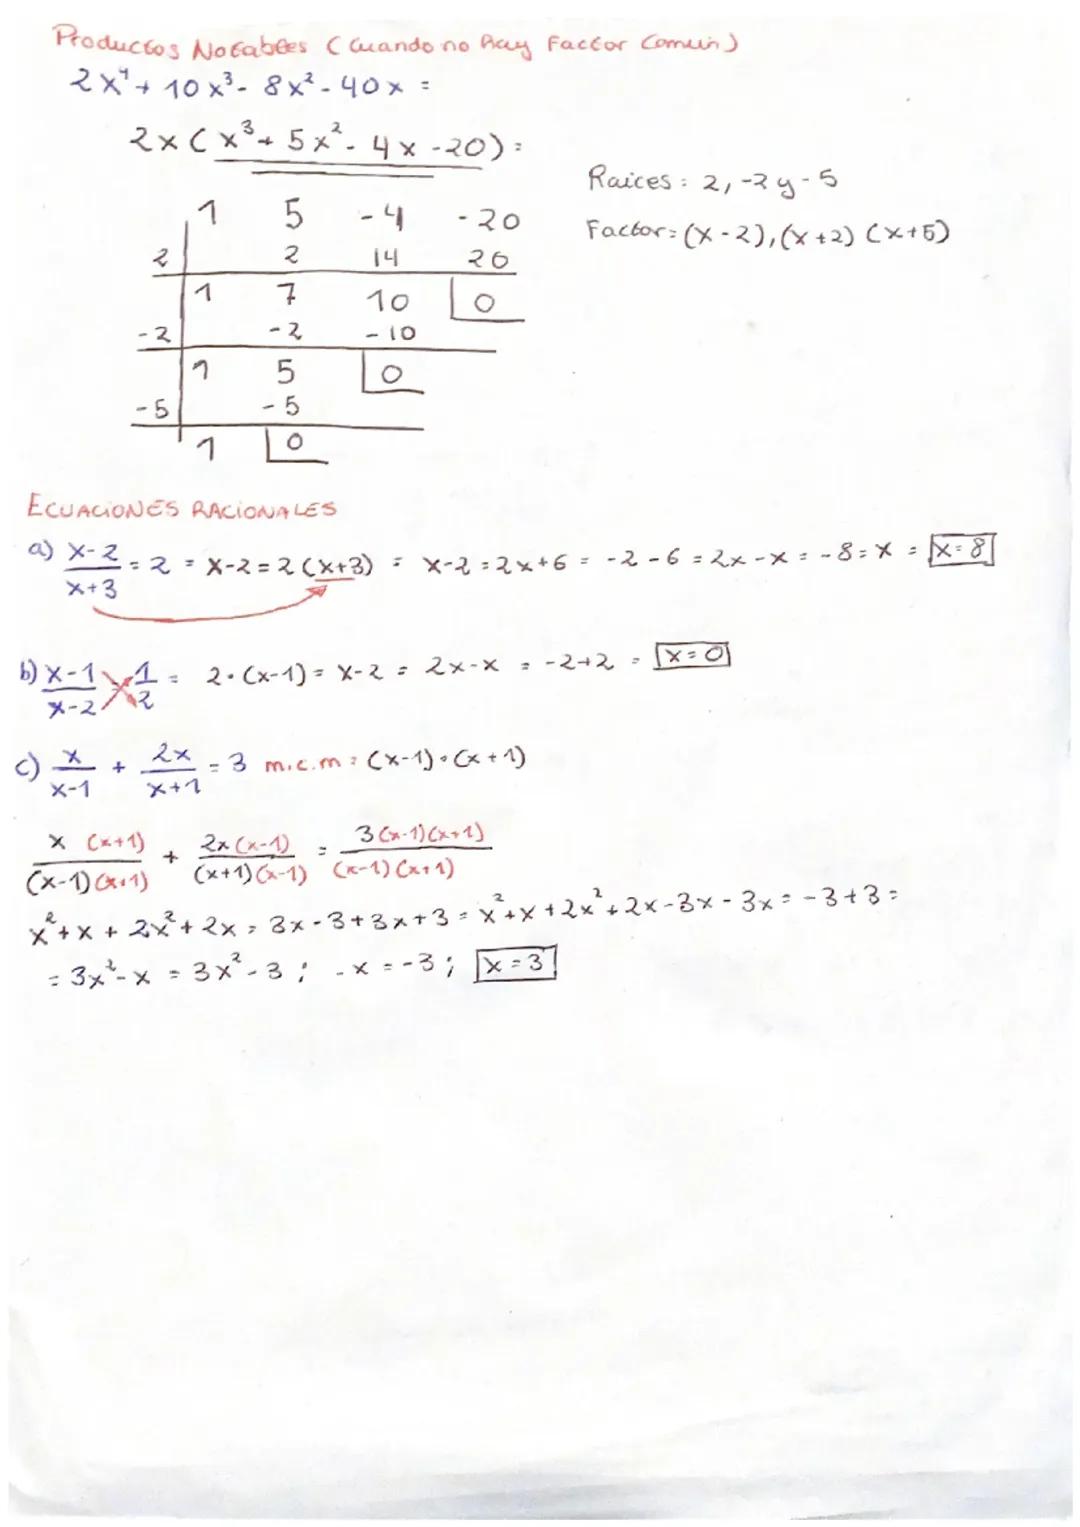 Productos Notables (Cuando no hay Factor Común)
2x⁴ + 10x³ - 8x² - 40x =
2x (x³ + 5x² - 4x - 20) =
Raices: 2, -2 y -5
Factor: (x-2), (x+2) (x+5)
1 5 -4 -20
2 2 14 20
1 7 10 0
-2 -2 -10
1 5 0
-5 -5
1 0
ECUACIONES RACIONALES
a) x-2/x+3 = 2 = x-2 = 2(x+3) = x-2 = 2x+6 = -2-6 = 2x-x = -8 = x = x=8
b) x-1/x-2 1/2 = 2·(x-1) = x-2 = 2x-x = -2+2 = x=0
c) x/x-1 + 2x/x+1 = 3 m.c.m: (x-1)·(x+1)
x (x+1)/(x-1)(x+1) + 2x(x-1)/(x+1)(x-1) = 3(x-1)(x+1)/(x-1)(x+1)
x²+x + 2x²+2x = 3x-3+3x+3 = x²+x+2x²+2x-3x-3x = -3+3 =
= 3x²-x = 3x²-3 ; -x = -3 ; x=3